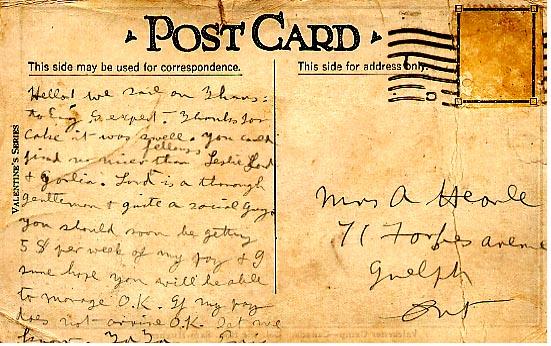 POST CARD
This side may be used for correspondence.
This side for address only.
VALENTINE'S SERIES
Hello! we sail on Thurs:
to Eng. I expect. Thanks for
cake it was swell. You could
find no nicer fellows than Leslie Lord
& Gordin. Lord is a thorough
gentleman & quite a social Guy.
you should soon be getting
5 $ per week of my pay & I
sure hope you will be able
to manage O.K. If my pay
does not arrive O.K. let me
know.
Mrs A Hearle
71 Forbes avenue
Guelph
Ont